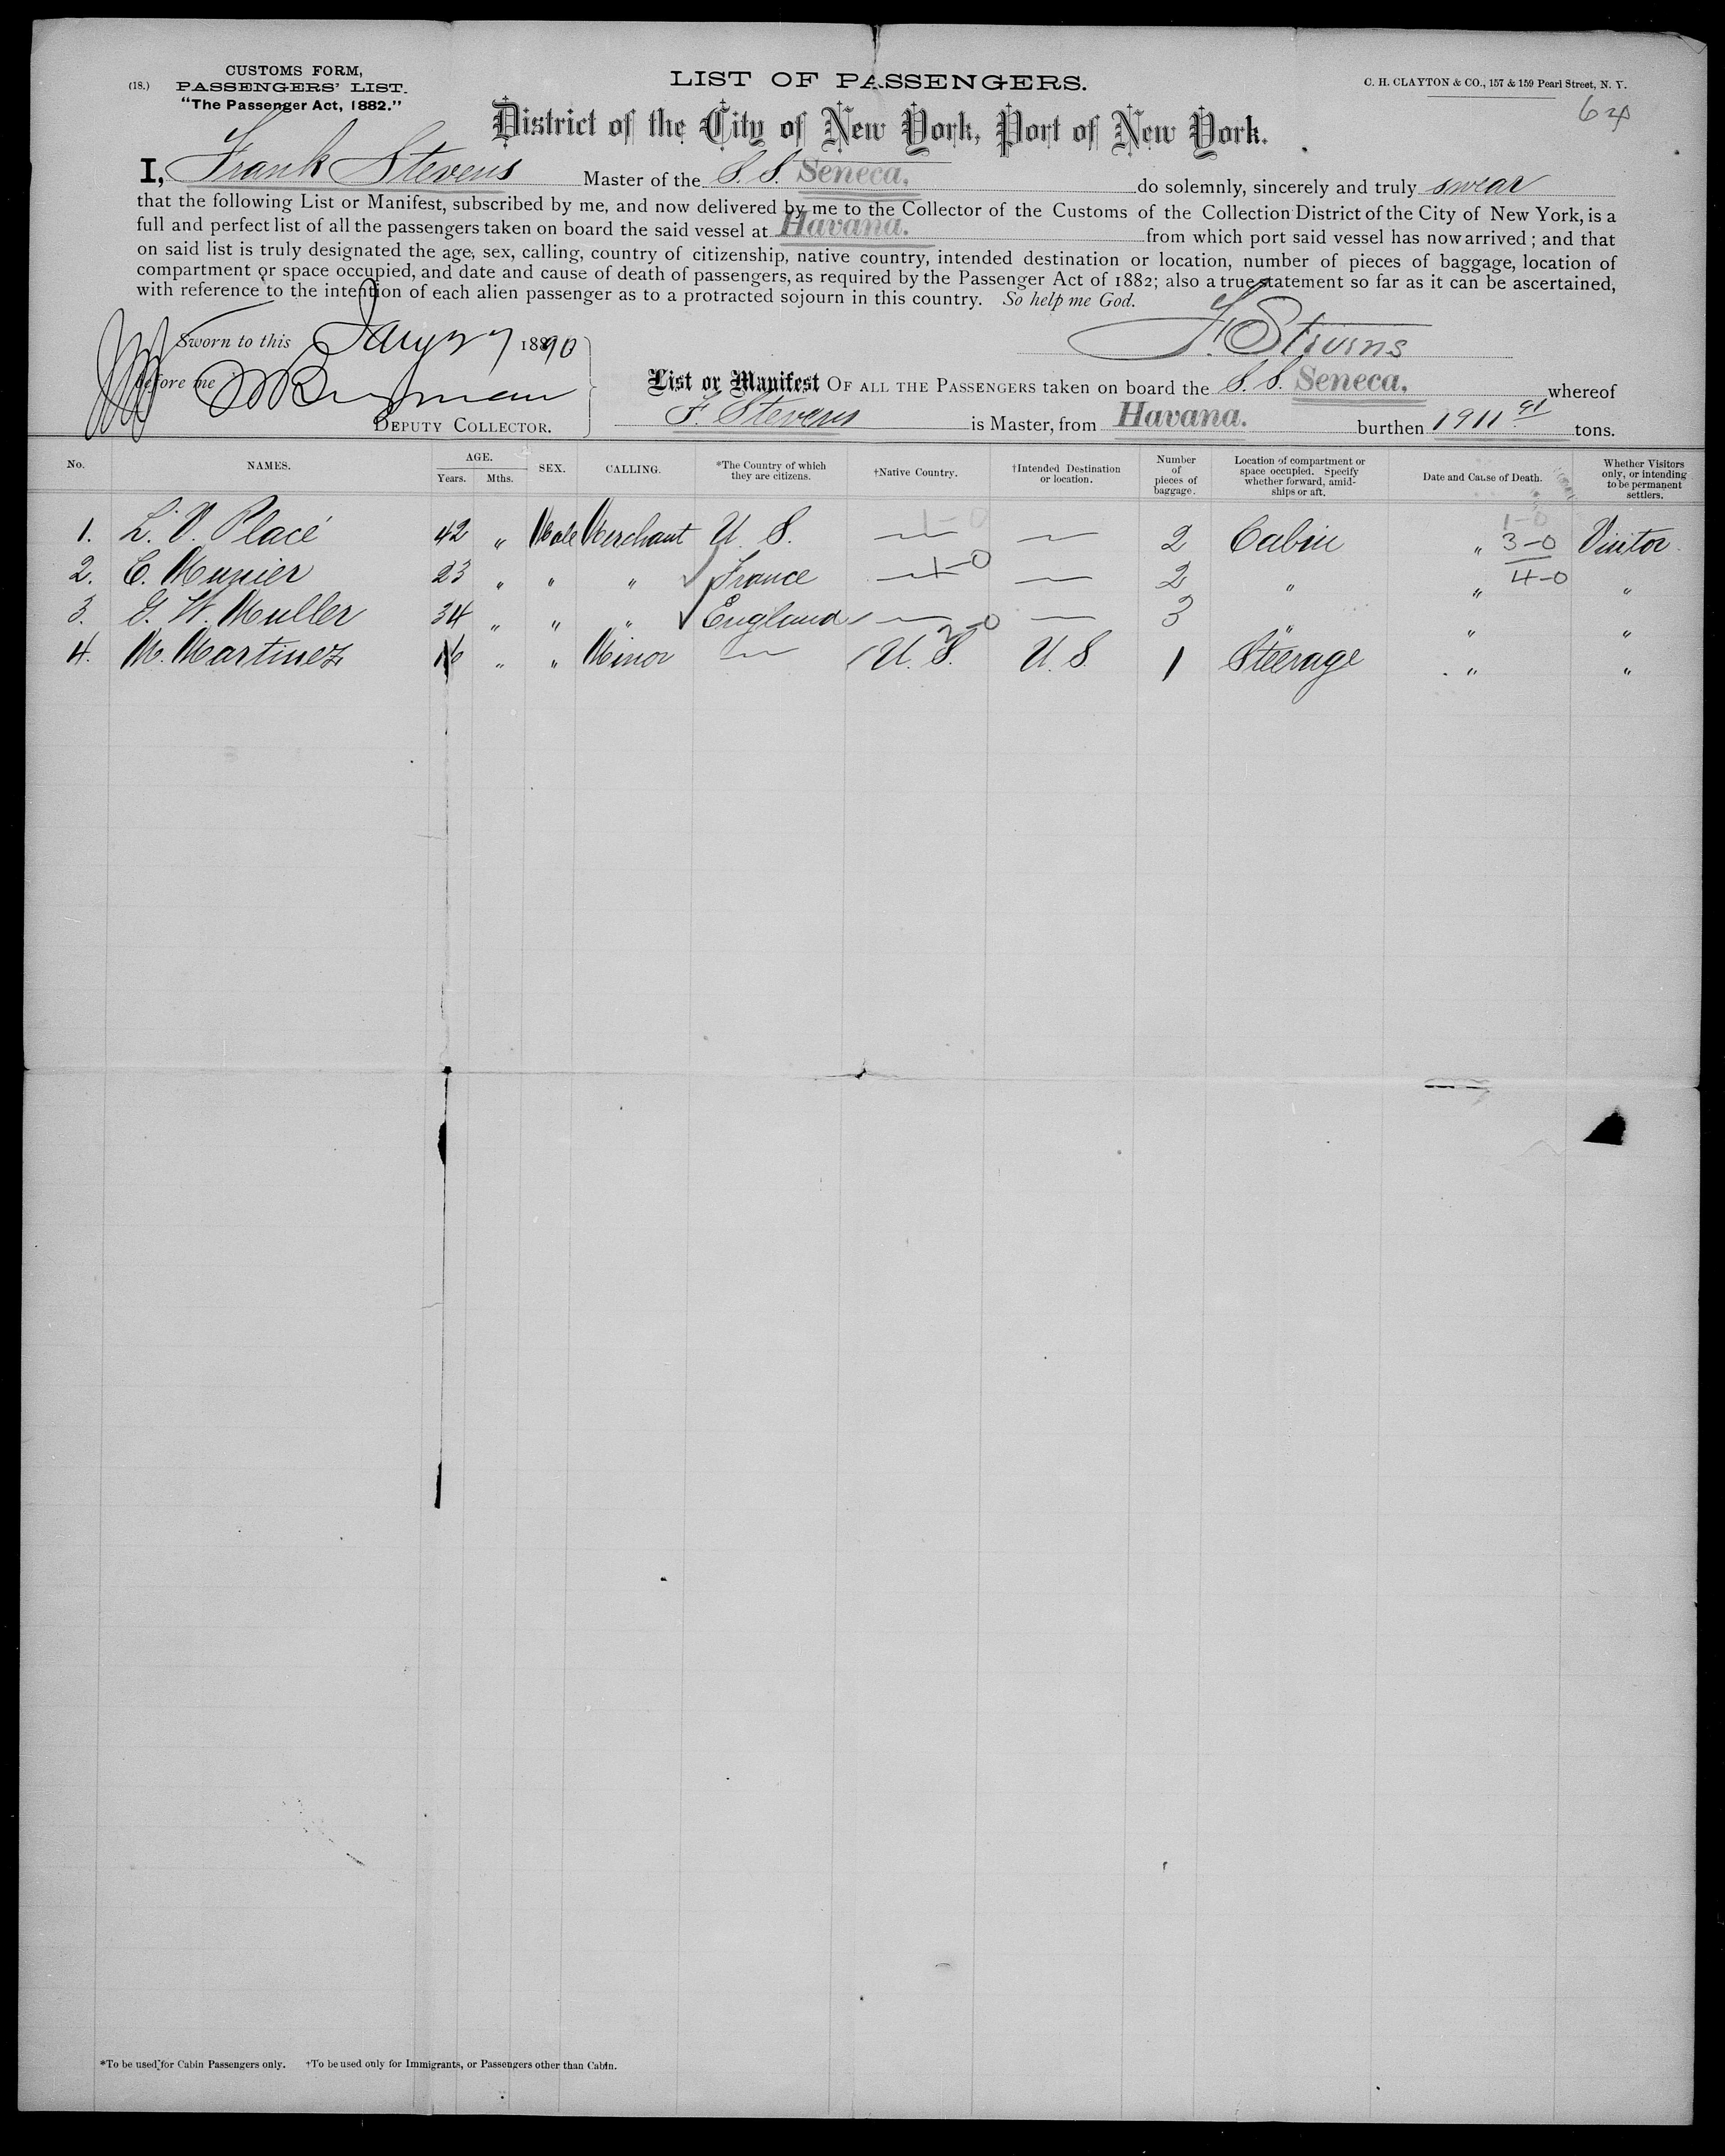 (18.)
CUSTOMS FORM,
PASSENGERS' LIST.
"The Passenger Act, 1882."
LIST OF PASSENGERS.
C. H. CLAYTON & CO., 157 & 159 Pearl Street, N. Y.
64
District of the City of New York, Port of New York.
I, Frank Stevens Master of the S. S. Seneca, do solemnly, sincerely and truly swear
that the following List or Manifest, subscribed by me, and now delivered by me to the Collector of the Customs of the Collection District of the City of New York, is a
full and perfect list of all the passengers taken on board the said vessel at Havana. from which port said vessel has now arrived; and that
on said list is truly designated the age, sex, calling, country of citizenship, native country, intended destination or location, number of pieces of baggage, location of
compartment or space occupied, and date and cause of death of passengers, as required by the Passenger Act of 1882; also a true statement so far as it can be ascertained,
with reference to the intention of each alien passenger as to a protracted sojourn in this country. So help me God.
F. Stevens
Sworn to this Jany 27 1890
before me
DEPUTY COLLECTOR.
List or Manifest OF ALL THE PASSENGERS taken on board the S. S. Seneca, whereof
F. Stevens is Master, from Havana. burthen 1911 91 tons.
No. NAMES. AGE. Years. Mths. SEX. CALLING. *The Country of which they are citizens. †Native Country. †Intended Destination or location. Number of pieces of baggage. Location of compartment or space occupied. Specify whether forward, amidships or aft. Date and Cause of Death. Whether Visitors only, or intending to be permanent settlers.
1. L. V. Placé 42 " Male Merchant U. S. 1-0 — — 2 Cabin " 1-0 3-0 Visitor
2. C. Munier 23 " " " France — 1-0 — 2 " " 4-0 "
3. G. W. Muller 34 " " " England — — 3 " " "
4. M. Martinez 16 " " Minor — U. S. 2-0 U. S. 1 Steerage " "
*To be used for Cabin Passengers only. †To be used only for Immigrants, or Passengers other than Cabin.